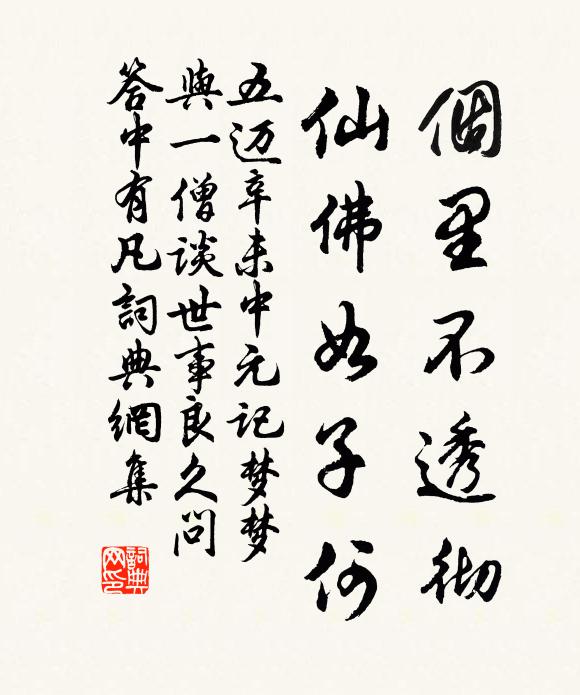 個里不透彻
仙佛如子何
五迈辛未中元记梦梦
與一僧談世事良久问
答中有凡詞典網集
詞典网印